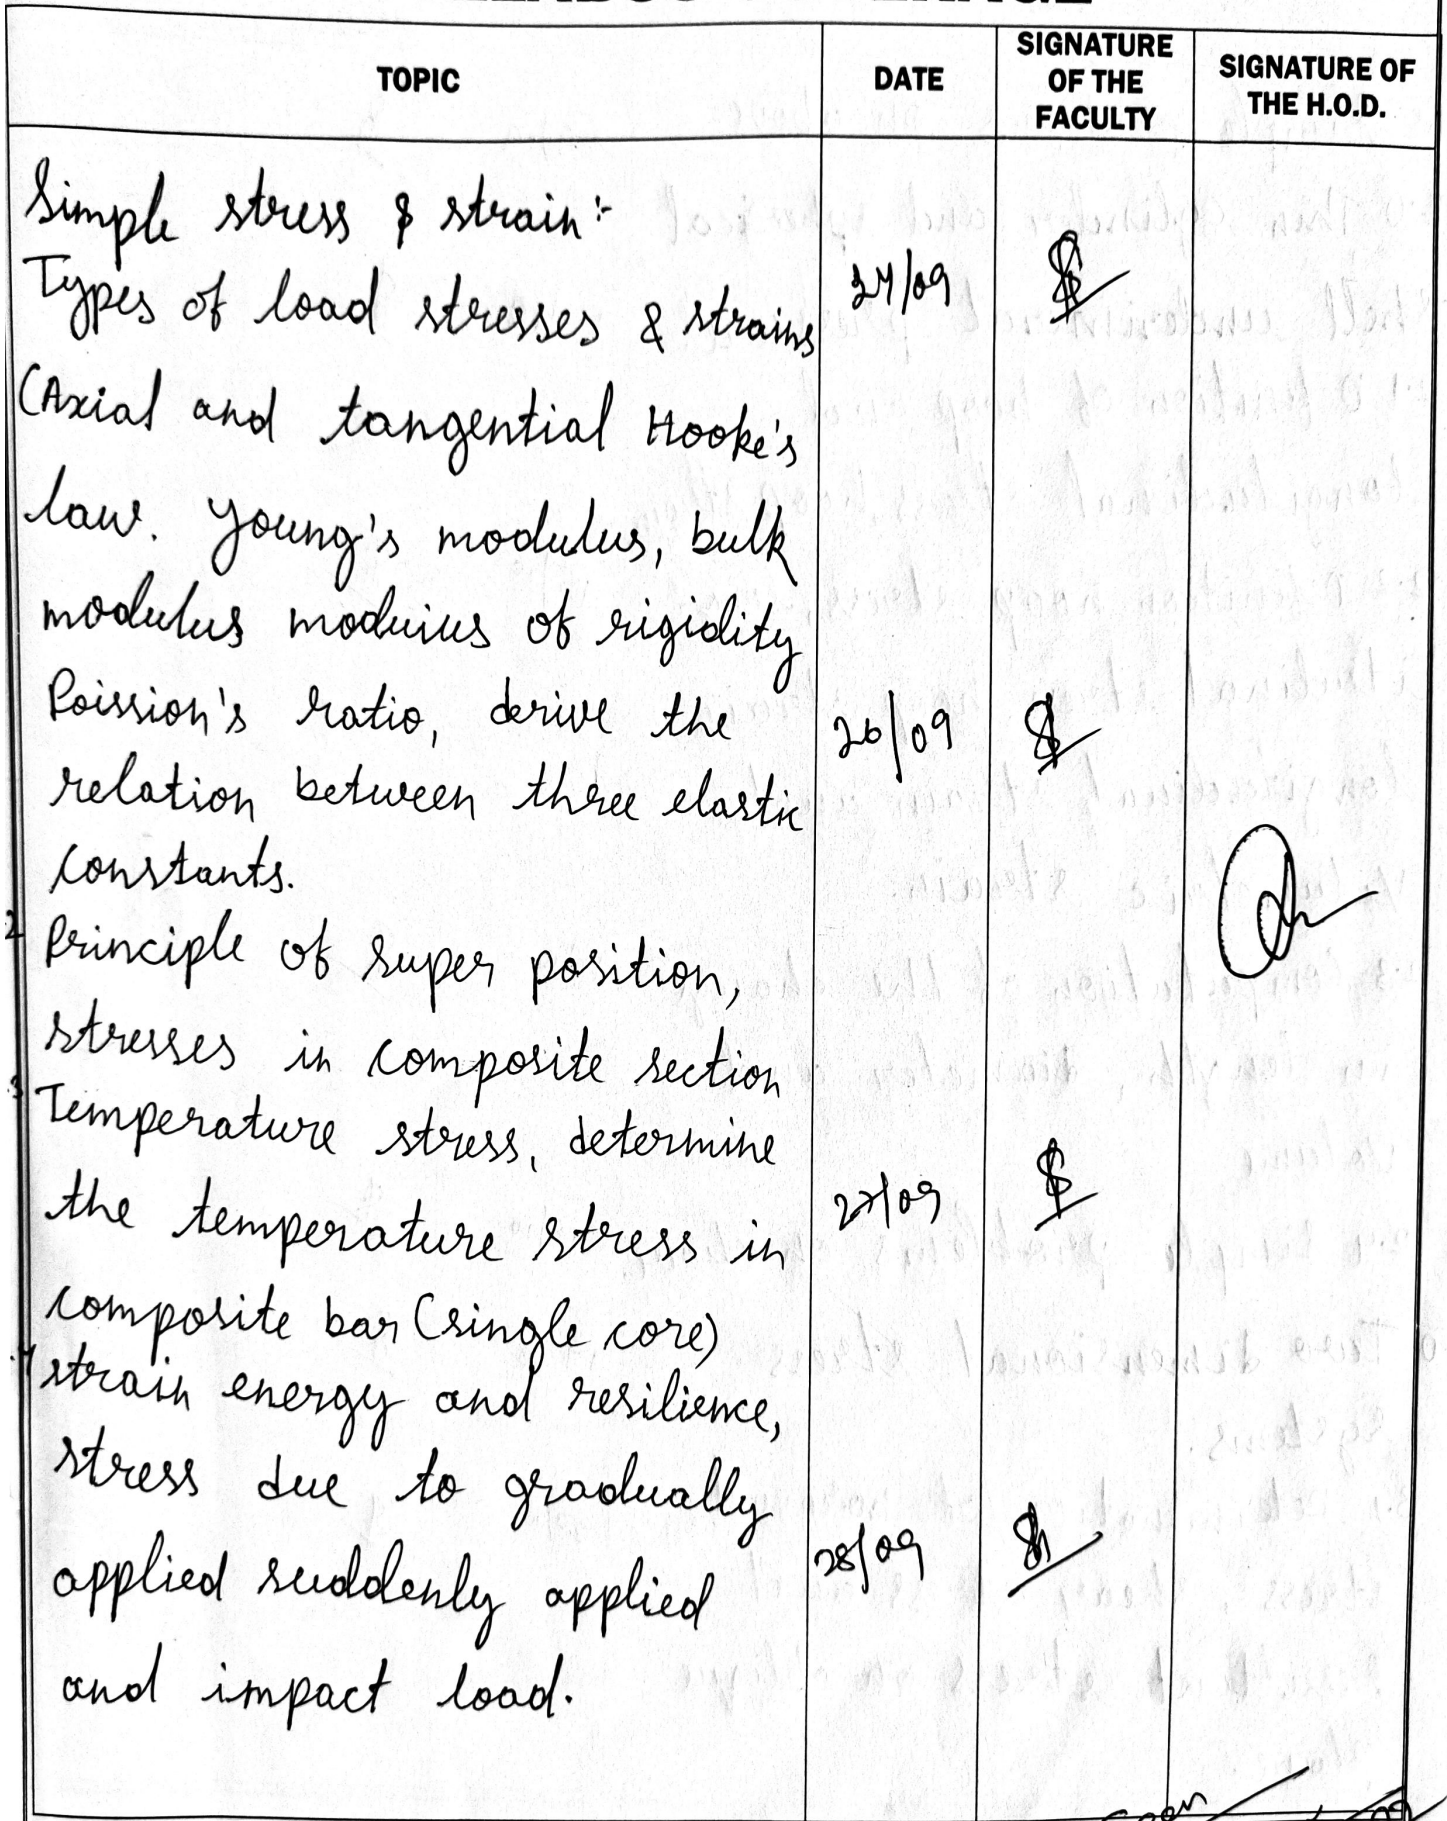 TOPIC
DATE
SIGNATURE OF THE FACULTY
SIGNATURE OF THE H.O.D.
Simple stress & strain:-
Types of load stresses & strains
24/09
(Axial and tangential Hooke's
law. Young's modulus, bulk
modulus moduius of rigidity
Poission's ratio, derive the
26/09
relation between three elastic
constants.
2
Principle of super position,
stresses in composite section
3
Temperature stress, determine
the temperature stress in
27/09
composite bar (single core)
.4
strain energy and resilience,
stress due to gradually
applied suddenly applied
28/09
and impact load.